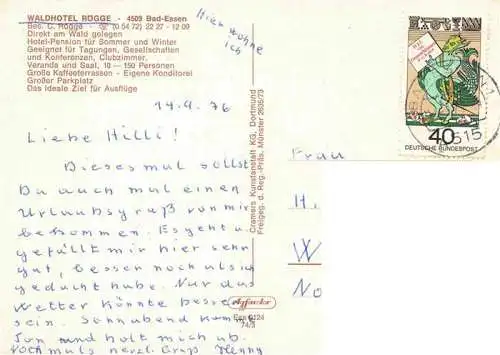 WALDHOTEL RÜGGE - 4509 Bad-Essen
Bes. C. Rögge - (0 54 72) 22 27 - 12 09
Direkt am Wald gelegen
Hotel-Pension für Sommer und Winter
Geeignet für Tagungen, Gesellschaften
und Konferenzen, Clubzimmer,
Veranda und Saal, 10 - 150 Personen
Große Kaffeeterrassen - Eigene Konditorei
Großer Parkplatz
Das ideale Ziel für Ausflüge
Hier wohne
ich
14.9.76
Liebe Hilli!
Dieses mal sollst
Du auch mal einen
Urlaubsgruß von mir
bekommen. Es geht u.
gefällt mir hier sehr
gut, besser noch als ich
gedacht habe. Nur das
Wetter könnte besser
sein. Sonnabend kommt
und holt mich ab.
Nochmals herzl. Gruß Henny
Cramers Kunstanstalt KG, Dortmund
Freigeg. d. Reg.-Präs. Münster 2635/73
Agfacolor
Esn 6124
74/3
40
DEUTSCHE BUNDESPOST
515
Frau
H.
W
No